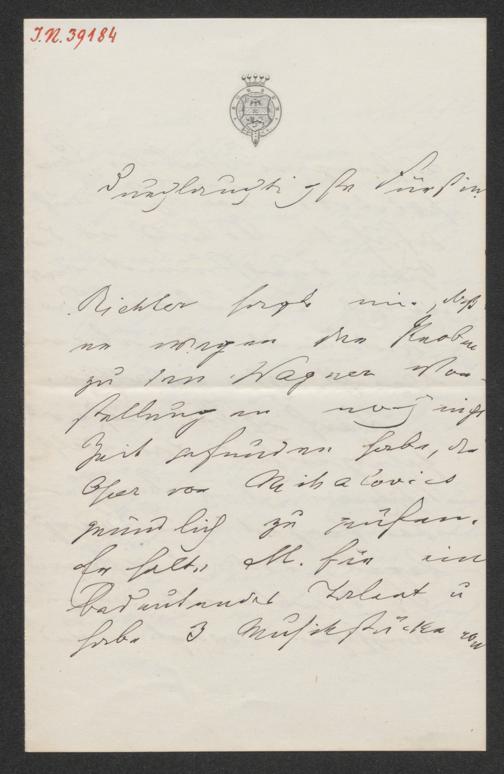 I.N. 39184
Durchlauchtigste Fürstin
Richter sagte mir, daß
er wegen der Proben
zu den Wagner Vor-
stellungen noch nicht
Zeit gefunden habe, die
Oper von Mihalovics
gründlich zu prüfen.
Er halte M. für ein
bedeutendes Talent u
habe 3 Musikstücke von